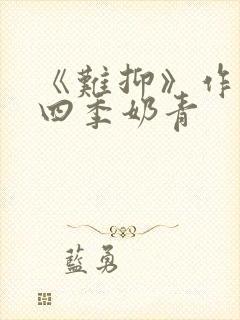 《難抑》作
四季奶青
藍勇